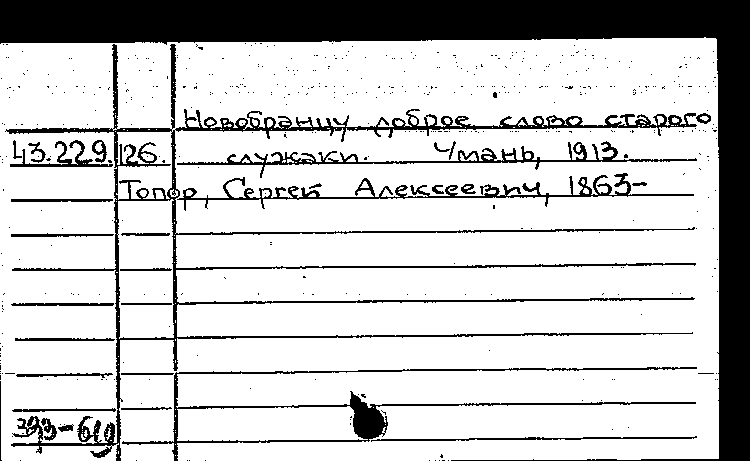 Новобранцу доброе слово старого
43.229. 126. служаки. Умань, 1913.
Топор, Сергей Алексеевич, 1863-
393-619